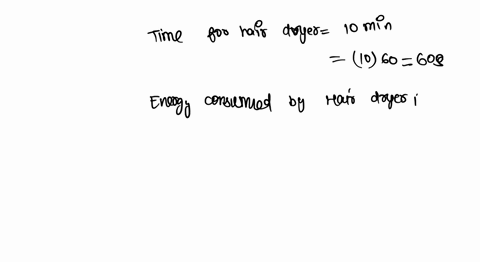 Time for hair dryer = 10 min
= (10) 60 = 60s
Energy consumed by Hair dryer i